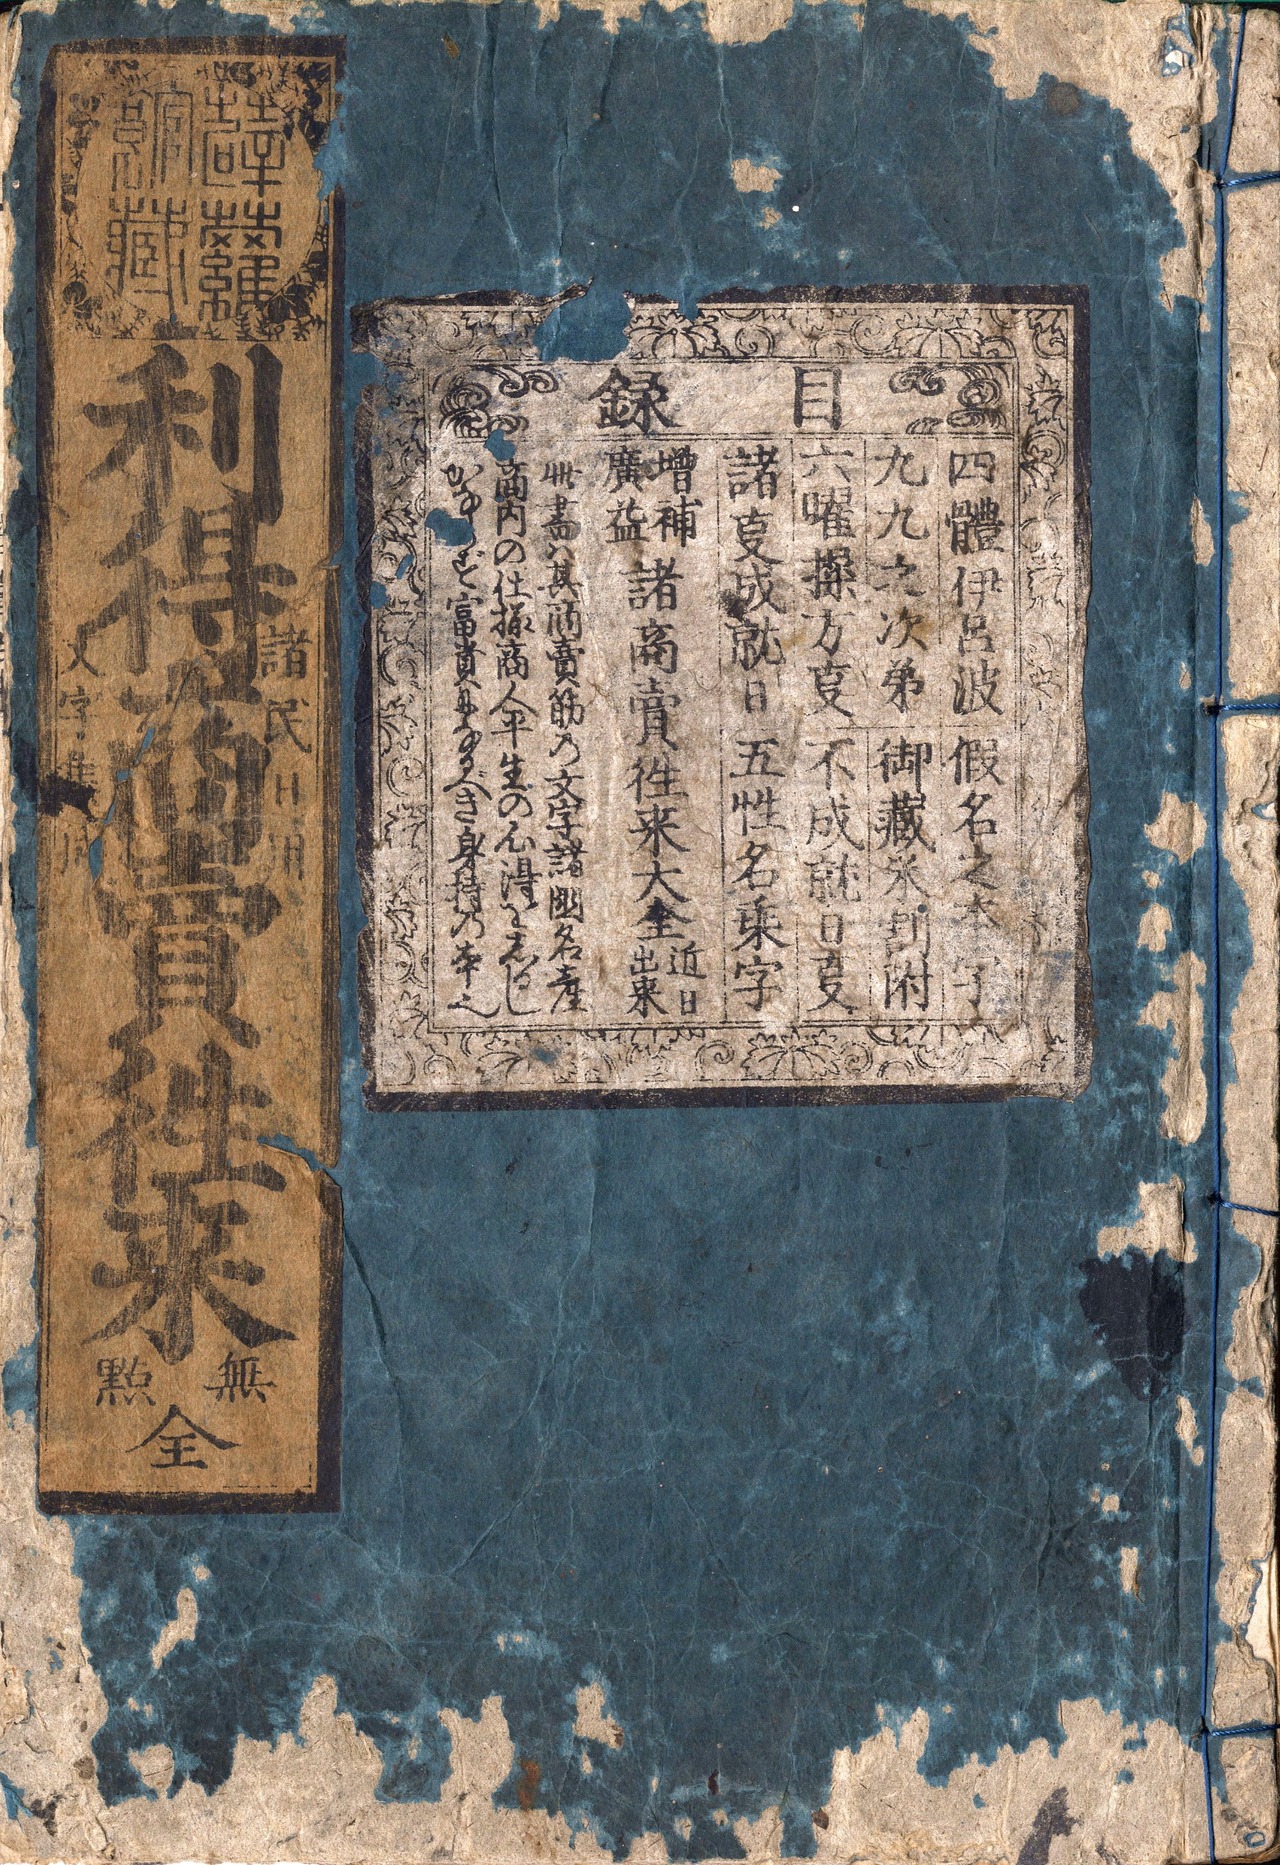 目録
四體伊呂波
假名之本字
九九之次第
御藏米割附
六曜擇方叓
不成就日叓
諸叓成就日
五性名乗字
増補
廣益
諸商賣往来大全
近日
出来
此書ハ其商賣筋の文字諸國名産
商内の仕様商人平生の心得を志るし
富貴になるべき身持の本也
薜蘿館藏
諸民日用
利得商賣往来
文字
無點
全